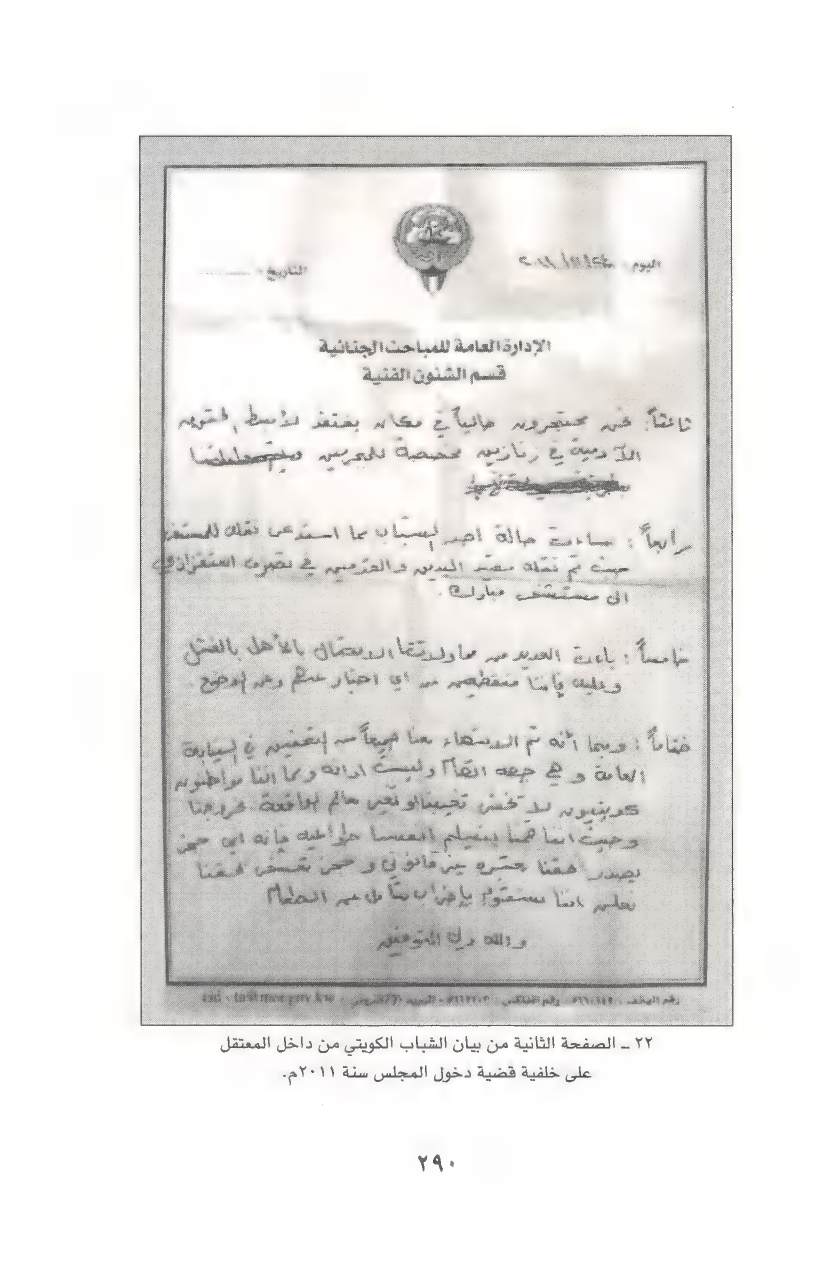 اليوم: ٢٤/١١/٢٠١١
التاريخ
الإدارة العامة للمباحث الجنائية
قسم الشئون الفنية
ثالثاً: نحن محتجزون حالياً في مكان يفتقد لأبسط الحقوق
الآدمية في زنازين مخصصة للمجرمين
رابعاً: ساءت حالة احد الشباب مما استدعى نقله للمستشفى
حيث تم نقله مقيد اليدين والقدمين في تصرف استفزازي
الى مستشفى مبارك.
خامساً: باءت العديد من محاولاتنا الاتصال بالأهل بالفشل
وعليه فإننا منقطعين من اي اخبار عنهم وعن الوضع.
ختاماً: وبما أنه تم الانتهاء معنا جميعاً من التحقيق في النيابة
العامة وهي جهة اتهام وليست ادانة وبما اننا مواطنون
كويتيون لا تخشى تغيبنا او تغير معالم الواقعة بخروجنا
وحيث اننا قمنا بتسليم انفسنا طواعية فإنه اي حجز
يصدر بحقنا يعتبر غير قانوني وحجز تعسفي بحقنا
نعلن اننا سنقوم بإضراب شامل عن الطعام
والله ولي التوفيق
٢٢ ــ الصفحة الثانية من بيان الشباب الكويتي من داخل المعتقل
على خلفية قضية دخول المجلس سنة ٢٠١١م.
٢٩٠